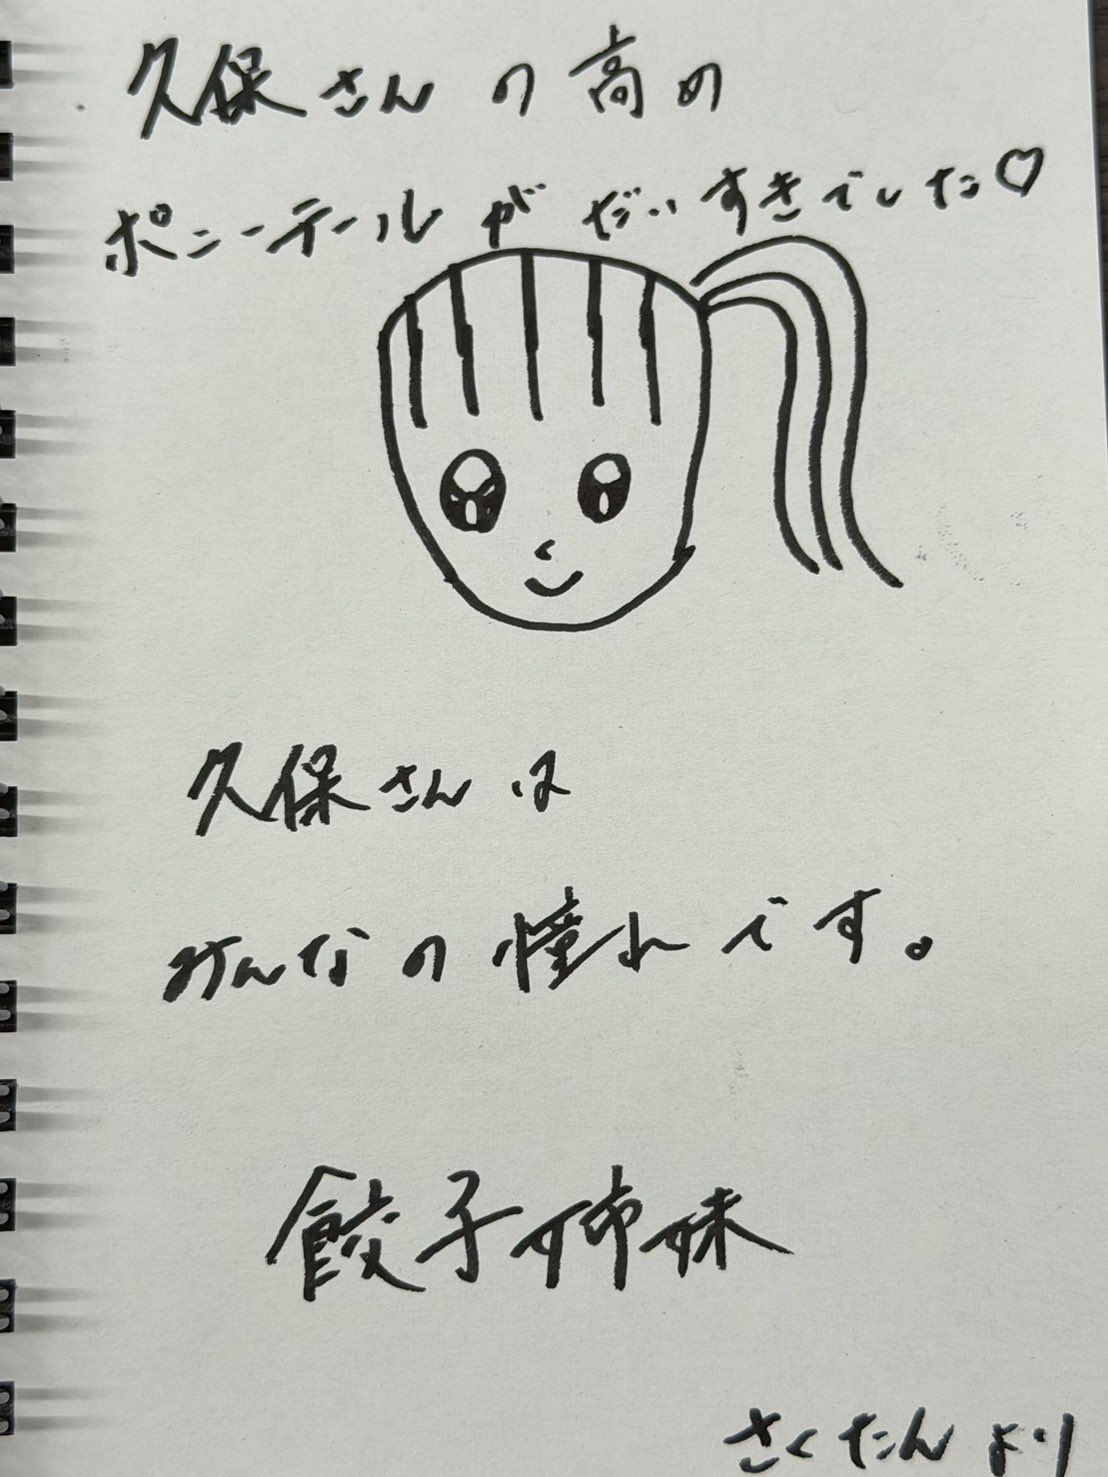 久保さんの高め
ポニーテールがだいすきでした♡
久保さんは
みんなの憧れです。
餃子姉妹
さくたんより